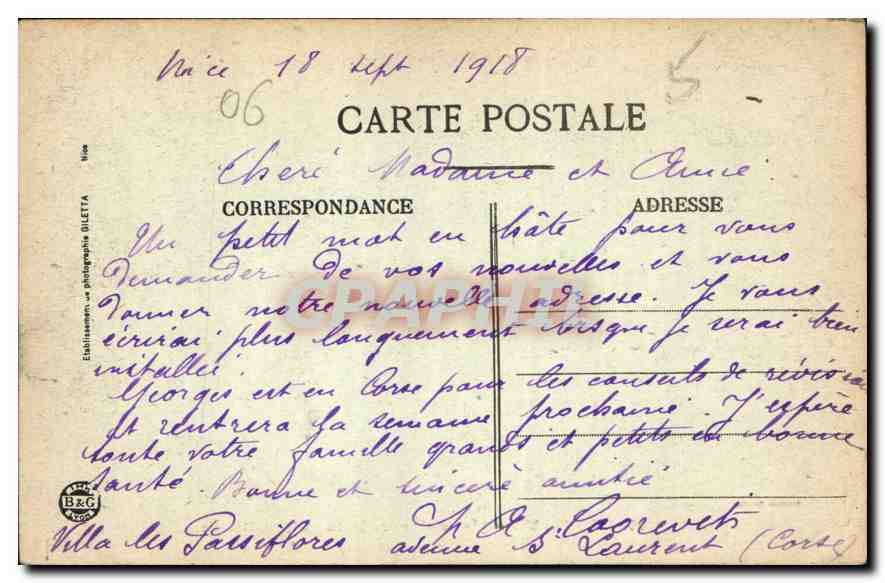 Nice 18 sept 1918
06
5
CARTE POSTALE
Cheré Madame et Amie
CORRESPONDANCE
ADRESSE
Un petit mot en hâte pour vous
demander de vos nouvelles et vous
donner notre nouvelle adresse. Je vous
écrirai plus longuement lorsque je serai bien
installée
Georges est en Corse pour les conseils de révision
et rentrera la semaine prochaine. J'espère
toute votre famille grands et petits en bonne
santé. Bonne et sincère amitié
Villa les Passiflores avenue St Laurent (Corse)
Etablissement de photographie GILETTA Nice
B&G
LYON
CPAPHIL